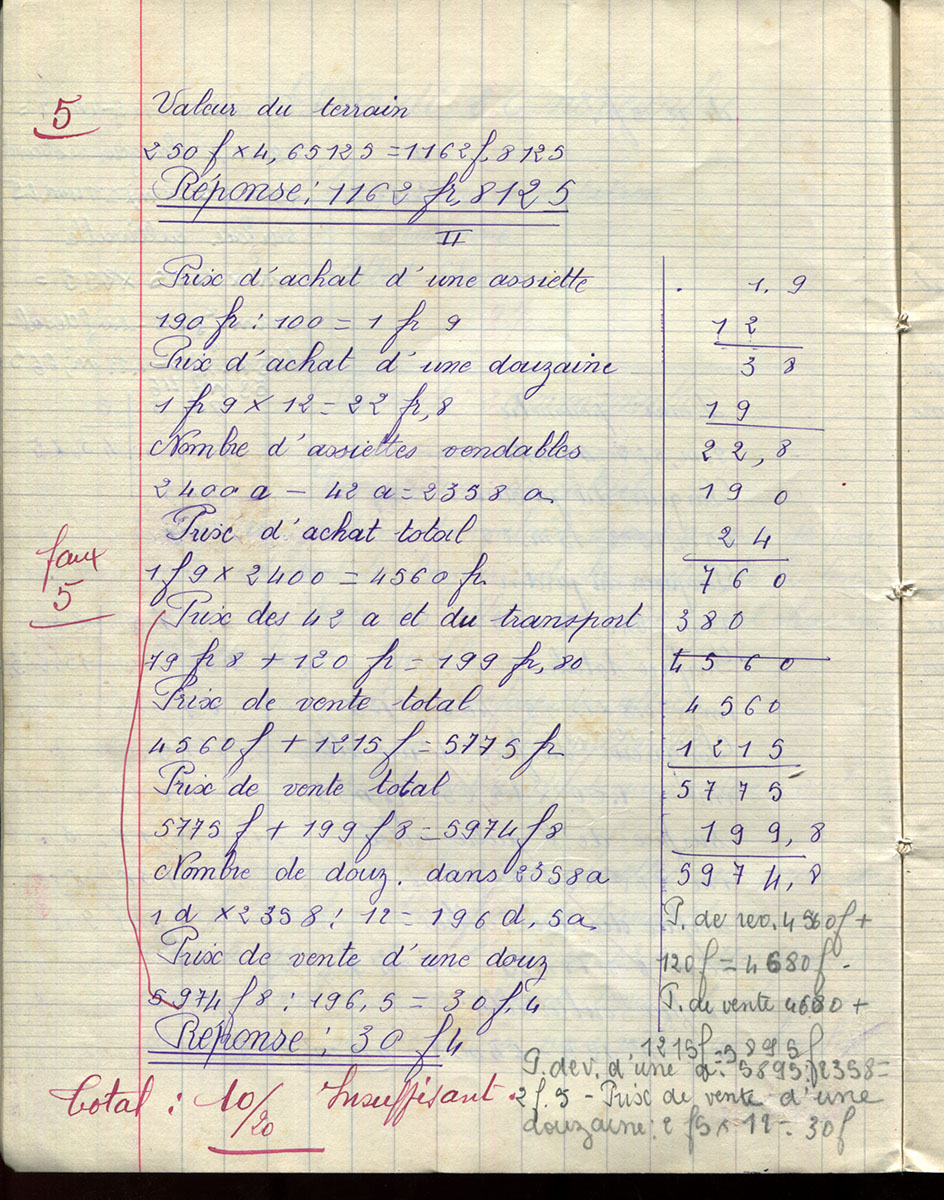 5
Valeur du terrain
250 f × 4,65125 = 1162 f, 8125
Réponse : 1162 fr, 8125
II
Prix d'achat d'une assiette
190 fr : 100 = 1 fr 9
Prix d'achat d'une douzaine
1 fr 9 × 12 = 22 fr, 8
Nombre d'assiettes vendables
2400 a - 42 a = 2358 a
Prix d'achat total
1 f 9 × 2400 = 4560 fr
faux
5
Prix des 42 a et du transport
79 fr 8 + 120 fr = 199 fr, 80
Prix de vente total
4560 f + 1215 f = 5775 fr
Prix de vente total
5775 f + 199 f 8 = 5974 f 8
Nombre de douz. dans 2358 a
1 d × 2358 : 12 = 196 d, 5 a
Prix de vente d'une douz
5974 f 8 : 196,5 = 30 f, 4
Réponse : 30 f 4
total : 10/20 Insuffisant.
1,9
12
38
19
22,8
190
24
760
380
4560
4560
1215
5775
199,8
5974,8
P. de rev. 4560 f +
120 f = 4680 f.
P. de vente 4680 +
1215 f = 5895 f
P. de v. d'une a : 5895 f : 2358 =
2 f. 5 - Prix de vente d'une
douzaine : 2 f 5 × 12 = 30 f